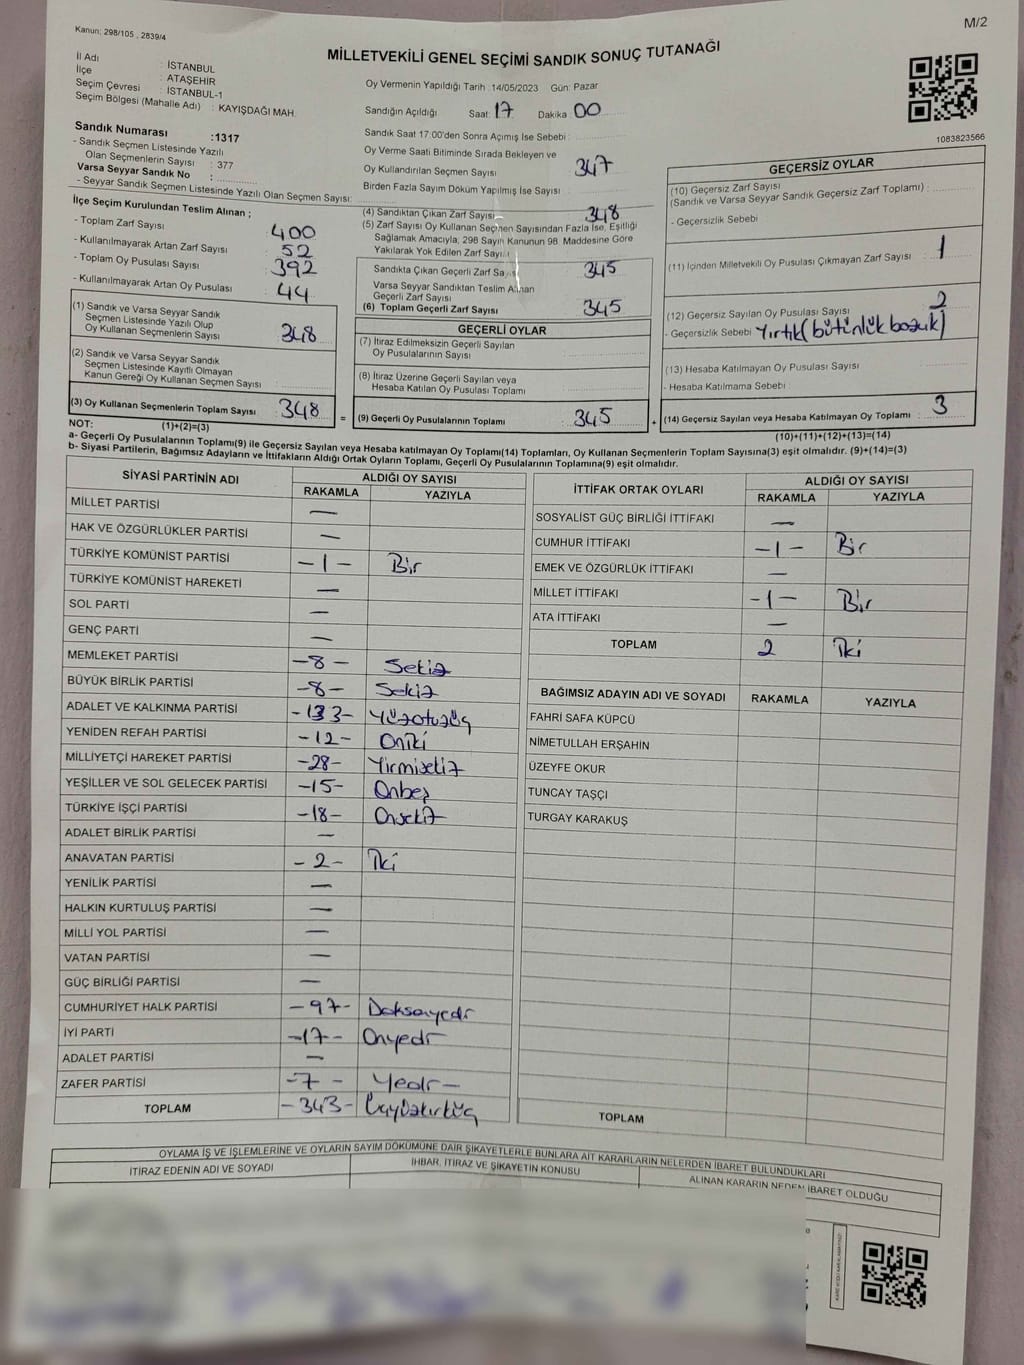 Kanun: 298/105 , 2839/4
M/2
MİLLETVEKİLİ GENEL SEÇİMİ SANDIK SONUÇ TUTANAĞI
İl Adı : İSTANBUL
İlçe : ATAŞEHİR
Seçim Çevresi : İSTANBUL-1
Seçim Bölgesi (Mahalle Adı) : KAYIŞDAĞI MAH.
Sandık Numarası : 1317
- Sandık Seçmen Listesinde Yazılı
Olan Seçmenlerin Sayısı : 377
Varsa Seyyar Sandık No :
- Seyyar Sandık Seçmen Listesinde Yazılı Olan Seçmen Sayısı:
Oy Vermenin Yapıldığı Tarih : 14/05/2023 Gün: Pazar
Sandığın Açıldığı Saat: 17 Dakika 00
Sandık Saat 17:00'den Sonra Açımış İse Sebebi :
Oy Verme Saati Bitiminde Sırada Bekleyen ve
Oy Kullandırılan Seçmen Sayısı 347
Birden Fazla Sayım Döküm Yapılmış İse Sayısı :
1083823566
İlçe Seçim Kurulundan Teslim Alınan ;
- Toplam Zarf Sayısı : 400
- Kullanılmayarak Artan Zarf Sayısı : 52
- Toplam Oy Pusulası Sayısı : 392
- Kullanılmayarak Artan Oy Pusulası : 44
(1) Sandık ve Varsa Seyyar Sandık
Seçmen Listesinde Yazılı Olup
Oy Kullanan Seçmenlerin Sayısı : 348
(2) Sandık ve Varsa Seyyar Sandık
Seçmen Listesinde Kayıtlı Olmayan
Kanun Gereği Oy Kullanan Seçmen Sayısı :
(3) Oy Kullanan Seçmenlerin Toplam Sayısı : 348
(1)+(2)=(3)
(4) Sandıktan Çıkan Zarf Sayısı 348
(5) Zarf Sayısı Oy Kullanan Seçmen Sayısından Fazla İse, Eşitliği
Sağlamak Amacıyla; 298 Sayılı Kanunun 98. Maddesine Göre
Yakılarak Yok Edilen Zarf Sayısı
Sandıkta Çıkan Geçerli Zarf Sayısı : 345
Varsa Seyyar Sandıktan Teslim Alınan
Geçerli Zarf Sayısı
(6) Toplam Geçerli Zarf Sayısı : 345
GEÇERLİ OYLAR
(7) İtiraz Edilmeksizin Geçerli Sayılan
Oy Pusulalarının Sayısı :
(8) İtiraz Üzerine Geçerli Sayılan veya
Hesaba Katılan Oy Pusulası Toplamı :
= (9) Geçerli Oy Pusulalarının Toplamı : 345
GEÇERSİZ OYLAR
(10) Geçersiz Zarf Sayısı
(Sandık ve Varsa Seyyar Sandık Geçersiz Zarf Toplamı) :
- Geçersizlik Sebebi
(11) İçinden Milletvekili Oy Pusulası Çıkmayan Zarf Sayısı : 1
(12) Geçersiz Sayılan Oy Pusulası Sayısı : 2
- Geçersizlik Sebebi Yırtık (bütünlük bozuk)
(13) Hesaba Katılmayan Oy Pusulası Sayısı :
- Hesaba Katılmama Sebebi :
+ (14) Geçersiz Sayılan veya Hesaba Katılmayan Oy Toplamı : 3
(10)+(11)+(12)+(13)=(14)
NOT:
a- Geçerli Oy Pusulalarının Toplamı(9) ile Geçersiz Sayılan veya Hesaba katılmayan Oy Toplamı(14) Toplamları, Oy Kullanan Seçmenlerin Toplam Sayısına(3) eşit olmalıdır. (9)+(14)=(3)
b- Siyasi Partilerin, Bağımsız Adayların ve İttifakların Aldığı Ortak Oyların Toplamı, Geçerli Oy Pusulalarının Toplamına(9) eşit olmalıdır.
SİYASİ PARTİNİN ADI ALDIĞI OY SAYISI
RAKAMLA YAZIYLA
MİLLET PARTİSİ —
HAK VE ÖZGÜRLÜKLER PARTİSİ —
TÜRKİYE KOMÜNİST PARTİSİ -1- Bir
TÜRKİYE KOMÜNİST HAREKETİ —
SOL PARTİ —
GENÇ PARTİ —
MEMLEKET PARTİSİ -8- Sekiz
BÜYÜK BİRLİK PARTİSİ -8- Sekiz
ADALET VE KALKINMA PARTİSİ -133- Yüzotuzüç
YENİDEN REFAH PARTİSİ -12- Oniki
MİLLİYETÇİ HAREKET PARTİSİ -28- Yirmisekiz
YEŞİLLER VE SOL GELECEK PARTİSİ -15- Onbeş
TÜRKİYE İŞÇİ PARTİSİ -18- Onsekiz
ADALET BİRLİK PARTİSİ —
ANAVATAN PARTİSİ -2- İki
YENİLİK PARTİSİ —
HALKIN KURTULUŞ PARTİSİ —
MİLLİ YOL PARTİSİ —
VATAN PARTİSİ —
GÜÇ BİRLİĞİ PARTİSİ —
CUMHURİYET HALK PARTİSİ -97- Doksanyedi
İYİ PARTİ -17- Onyedi
ADALET PARTİSİ —
ZAFER PARTİSİ -7- Yedi-
TOPLAM -343- Üçyüzkırküç
İTTİFAK ORTAK OYLARI ALDIĞI OY SAYISI
RAKAMLA YAZIYLA
SOSYALİST GÜÇ BİRLİĞİ İTTİFAKI —
CUMHUR İTTİFAKI -1- Bir
EMEK VE ÖZGÜRLÜK İTTİFAKI —
MİLLET İTTİFAKI -1- Bir
ATA İTTİFAKI —
TOPLAM 2 İki
BAĞIMSIZ ADAYIN ADI VE SOYADI RAKAMLA YAZIYLA
FAHRİ SAFA KÜPCÜ
NİMETULLAH ERŞAHİN
ÜZEYFE OKUR
TUNCAY TAŞÇI
TURGAY KARAKUŞ
TOPLAM
OYLAMA İŞ VE İŞLEMLERİNE VE OYLARIN SAYIM DÖKÜMÜNE DAİR ŞİKAYETLERLE BUNLARA AİT KARARLARIN NELERDEN İBARET BULUNDUKLARI
İTİRAZ EDENİN ADI VE SOYADI İHBAR, İTİRAZ VE ŞİKAYETİN KONUSU ALINAN KARARIN NEDEN İBARET OLDUĞU